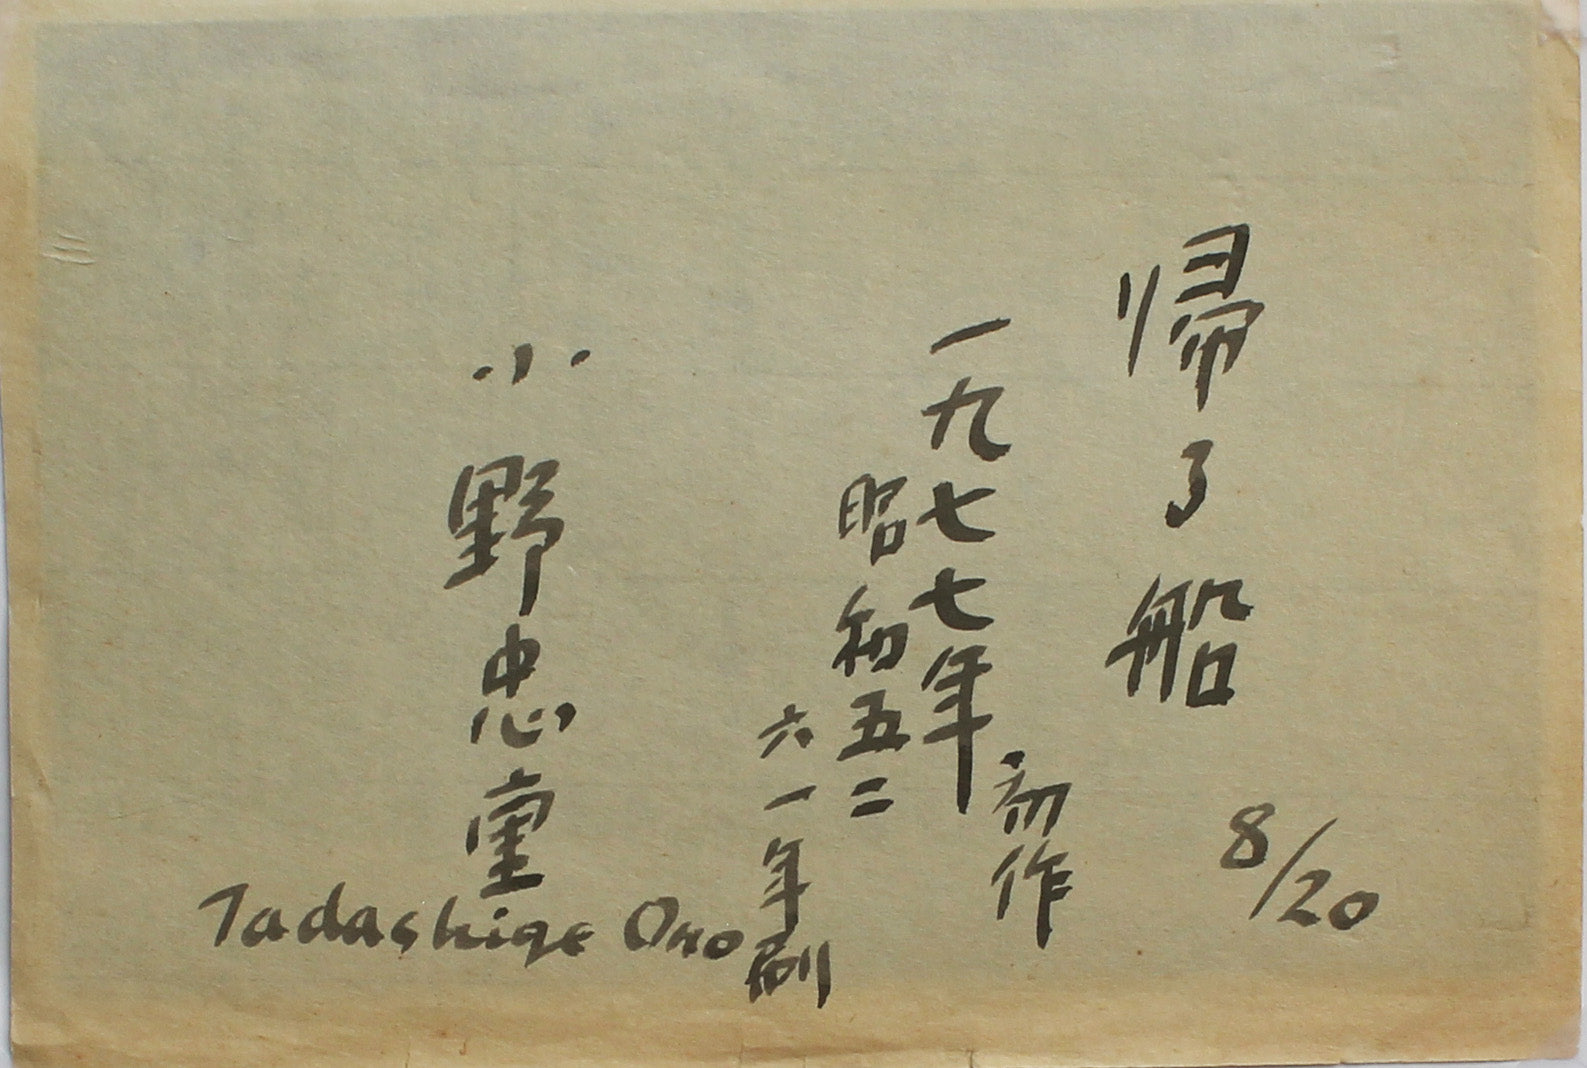 帰る船
8/20
一九七七年
初作
昭和五二
六一年刷
小野忠重
Tadashige Ono